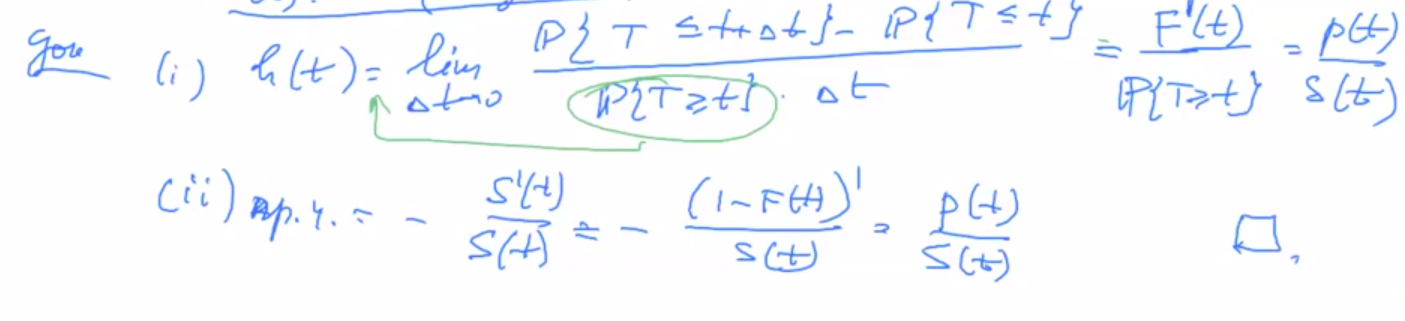 док (i) h(t) = lim_{Δt→0} (P{T ≤ t+Δt} - P{T ≤ t}) / (P{T ≥ t} · Δt) = F'(t) / P{T ≥ t} = p(t) / S(t)
(ii) пр.ч. = - S'(t) / S(t) = - (1 - F(t))' / S(t) = p(t) / S(t) □.